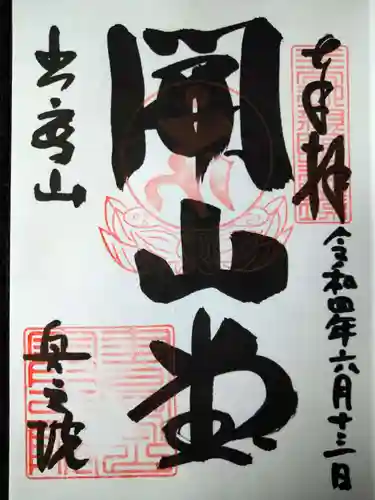 奉拝
令和四年六月十三日
開山堂
書寫山
奥之院